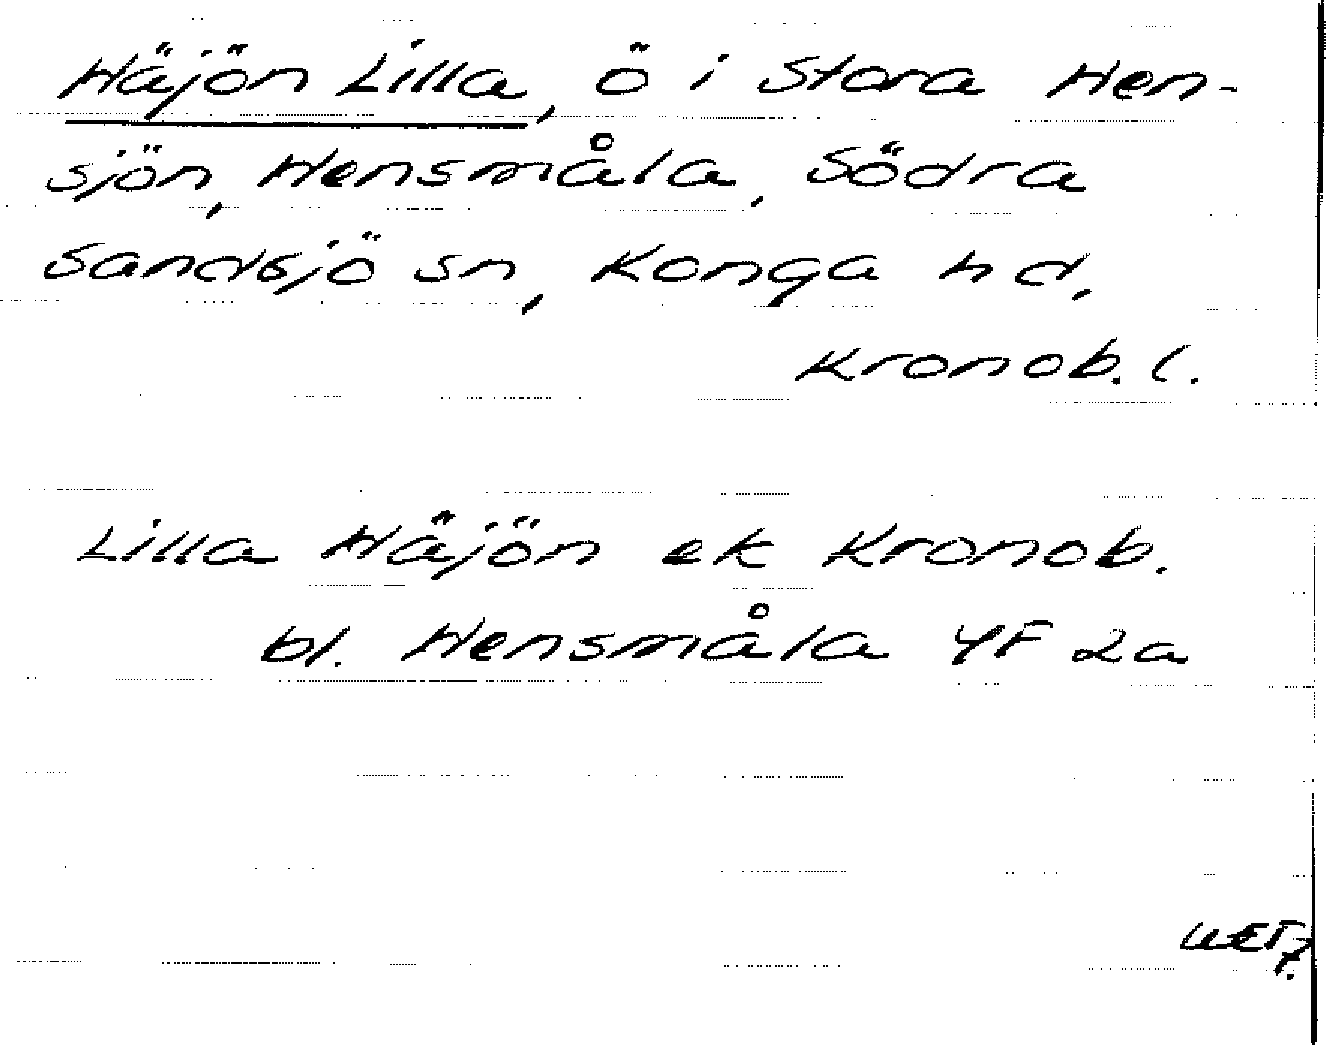 Häjön Lilla, ö i Stora Hen-
sjön, Hensmåla, Södra
Sandsjö sn, Konga hd,
Kronob. l.
Lilla Häjön ek Kronob.
bl. Hensmåla 4F 2a